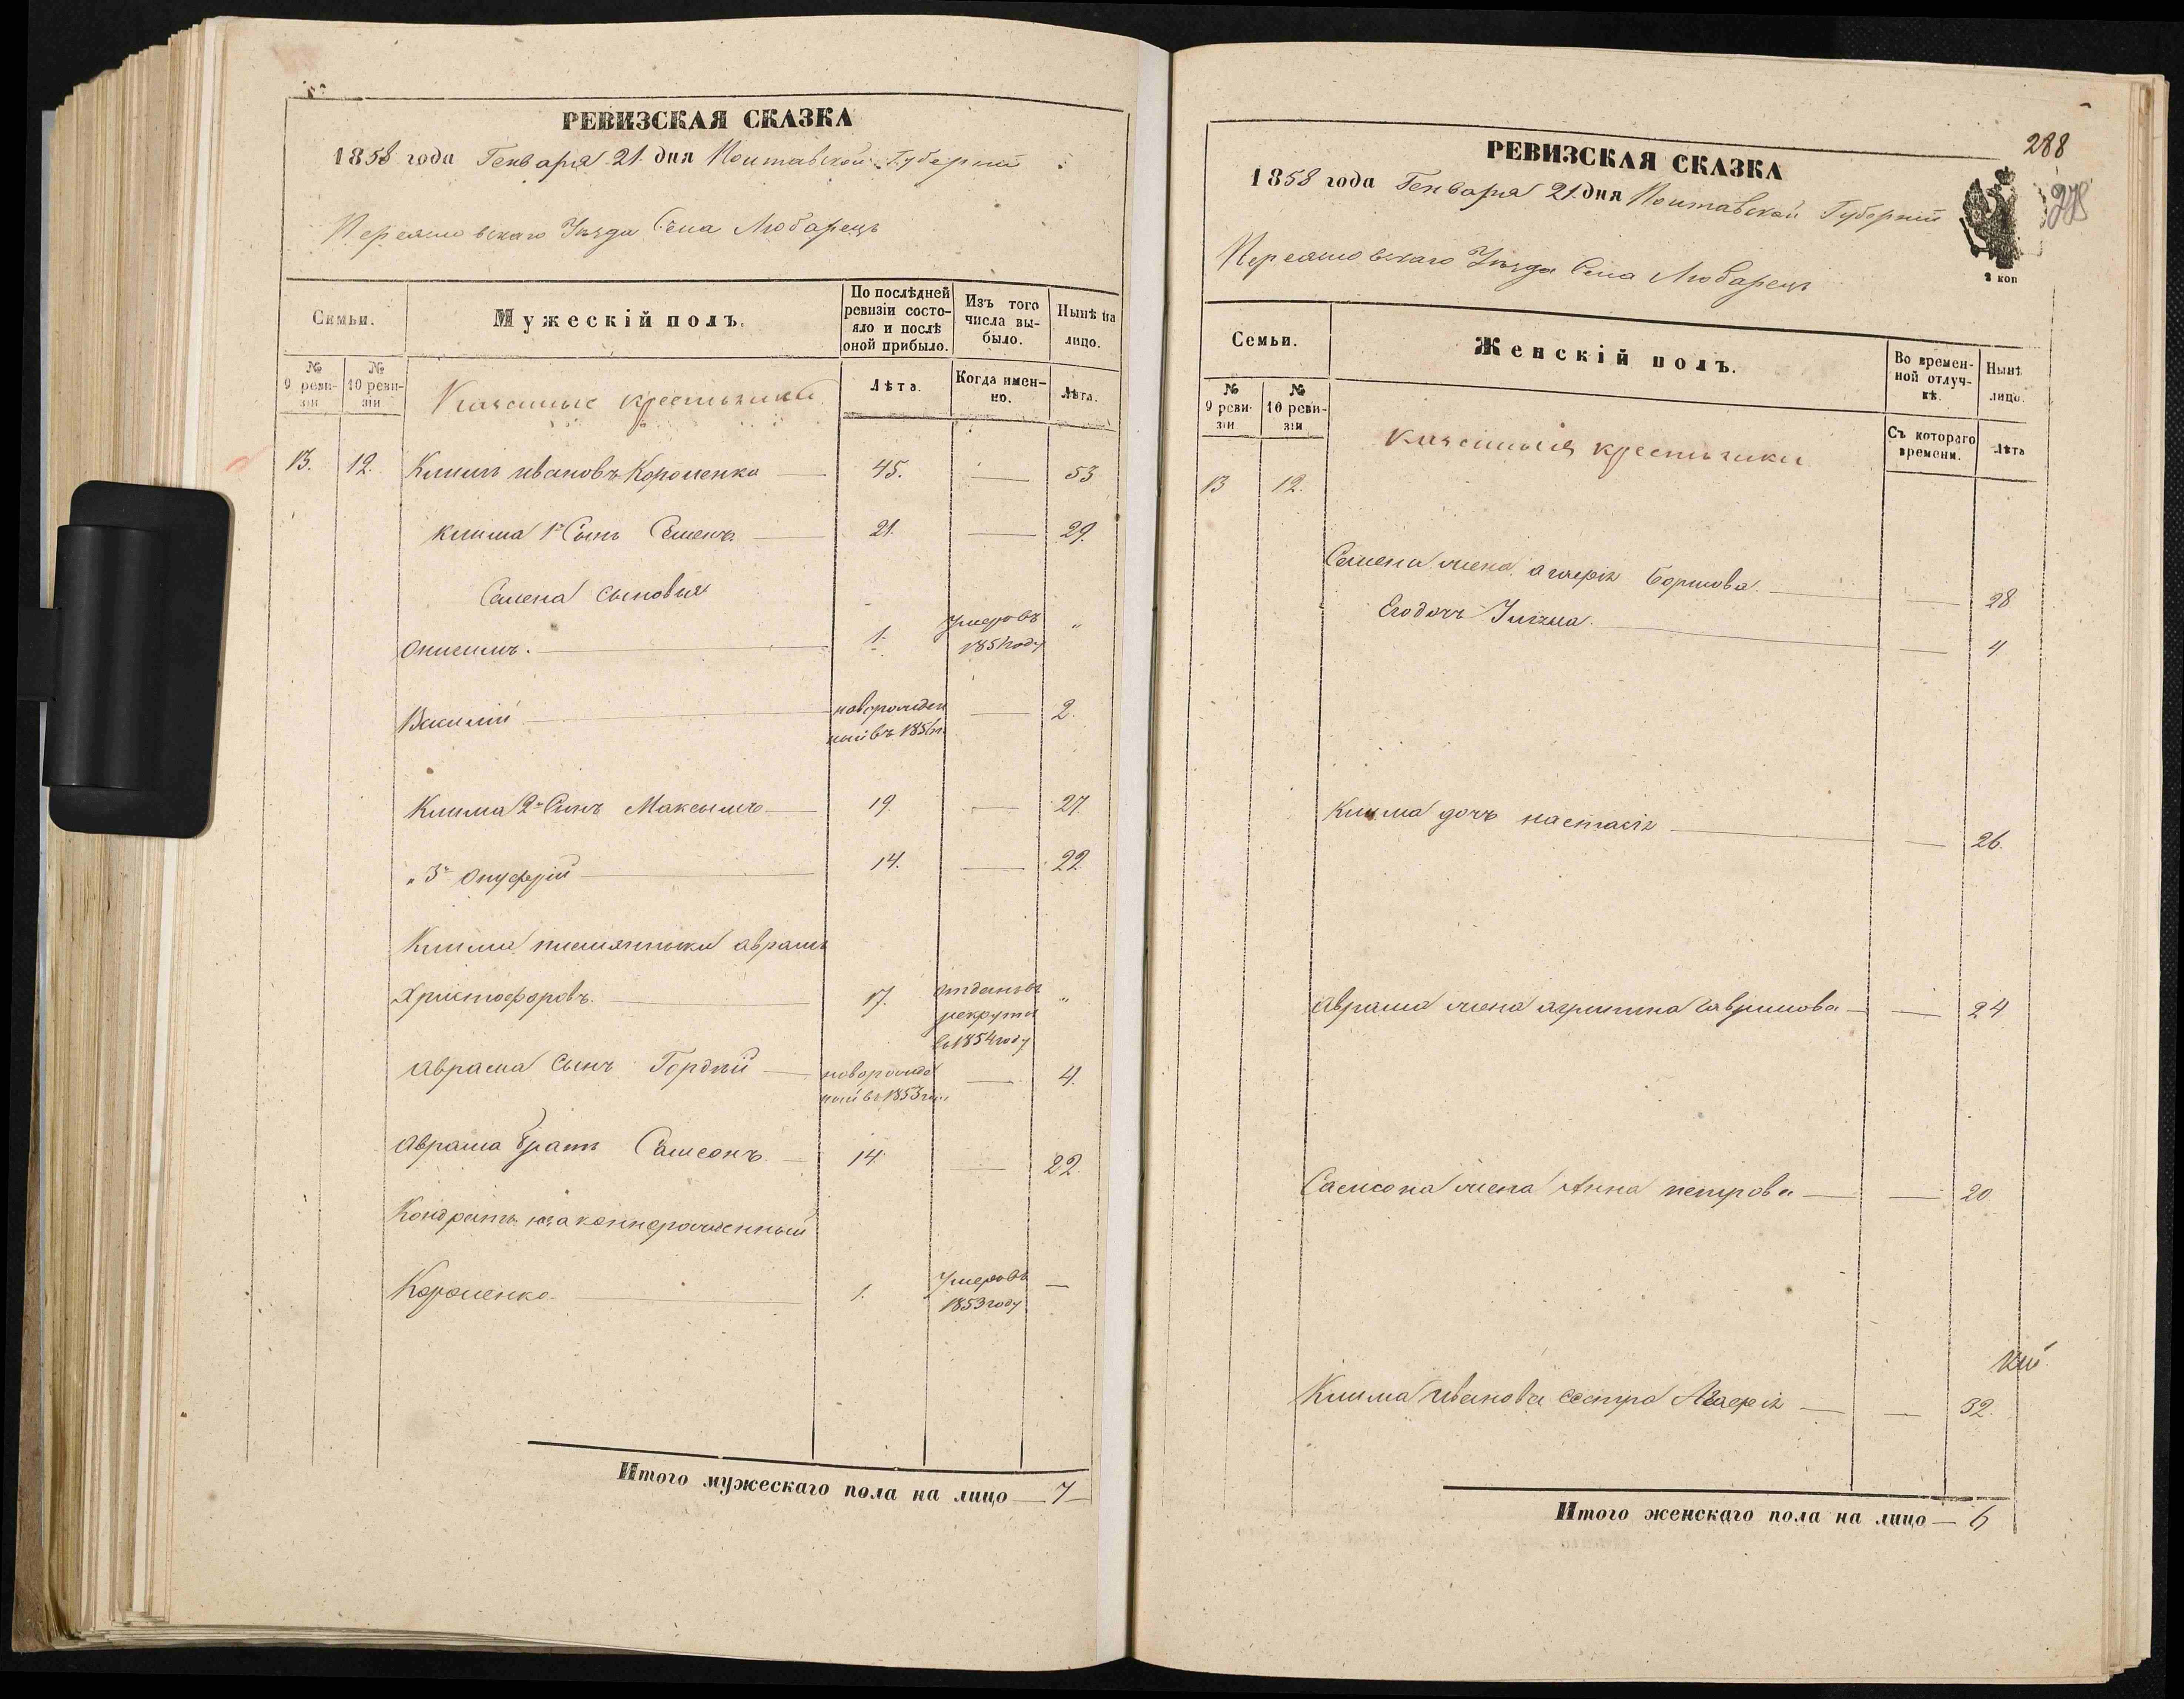 РЕВИЗСКАЯ СКАЗКА
1858 года Генваря 21 дня Полтавской Губернiи
Переяславскаго Уезда Села Любарецъ
Семьи.
Мужескiй полъ.
По послѣдней ревизiи состояло и послѣ оной прибыло.
Изъ того числа выбыло.
Нынѣ на лицо.
№ 9 ревизiи
№ 10 ревизiи
Казенные крестьяне
Лѣта.
Когда именно.
Лѣта.
13. 12. Климъ Ивановъ Короленко 45. — 53
Клима 1й Сынъ Семенъ 21. — 29.
Семена сыновья
Онисимъ. 1. Умеръ въ "
1851 году
Василiй новорожден — 2.
ный въ 1856 г.
Клима 2й Сынъ Максымъ 19. — 27.
" 3й Онуфрiй 14. — 22
Клима племянники Аврамъ
Христофоровъ. 17. отданъ въ "
рекруты
въ 1854 году
Аврама Сынъ Гордiй новорожде — 4.
ный въ 1853 г.
Аврама братъ Самсонъ 14. — 22.
Кондратъ незаконнорожденный
Короленко 1. Умеръ въ —
1853 году
Итого мужескаго пола на лицо — 7 —
288
278
РЕВИЗСКАЯ СКАЗКА
1858 года Генваря 21 дня Полтавской Губернiи
Переяславскаго Уезда Села Любарецъ
2 коп
Семьи.
Женскiй полъ.
Во временной отлучкѣ.
Нынѣ лицо.
№ 9 ревизiи
№ 10 ревизiи
Казенныя крестьянки
Съ котораго времени.
Лѣта
13 12.
Семена жена Агафiя — 28
Его дочь — 4
Клима дочь Настасiя — 26.
Аврама жена Агрипина Гаврилова — 24
Самсона жена Анна Петрова — 20.
Клима Иванова сестра Агафiя — 32.
Итого женскаго пола на лицо — 6